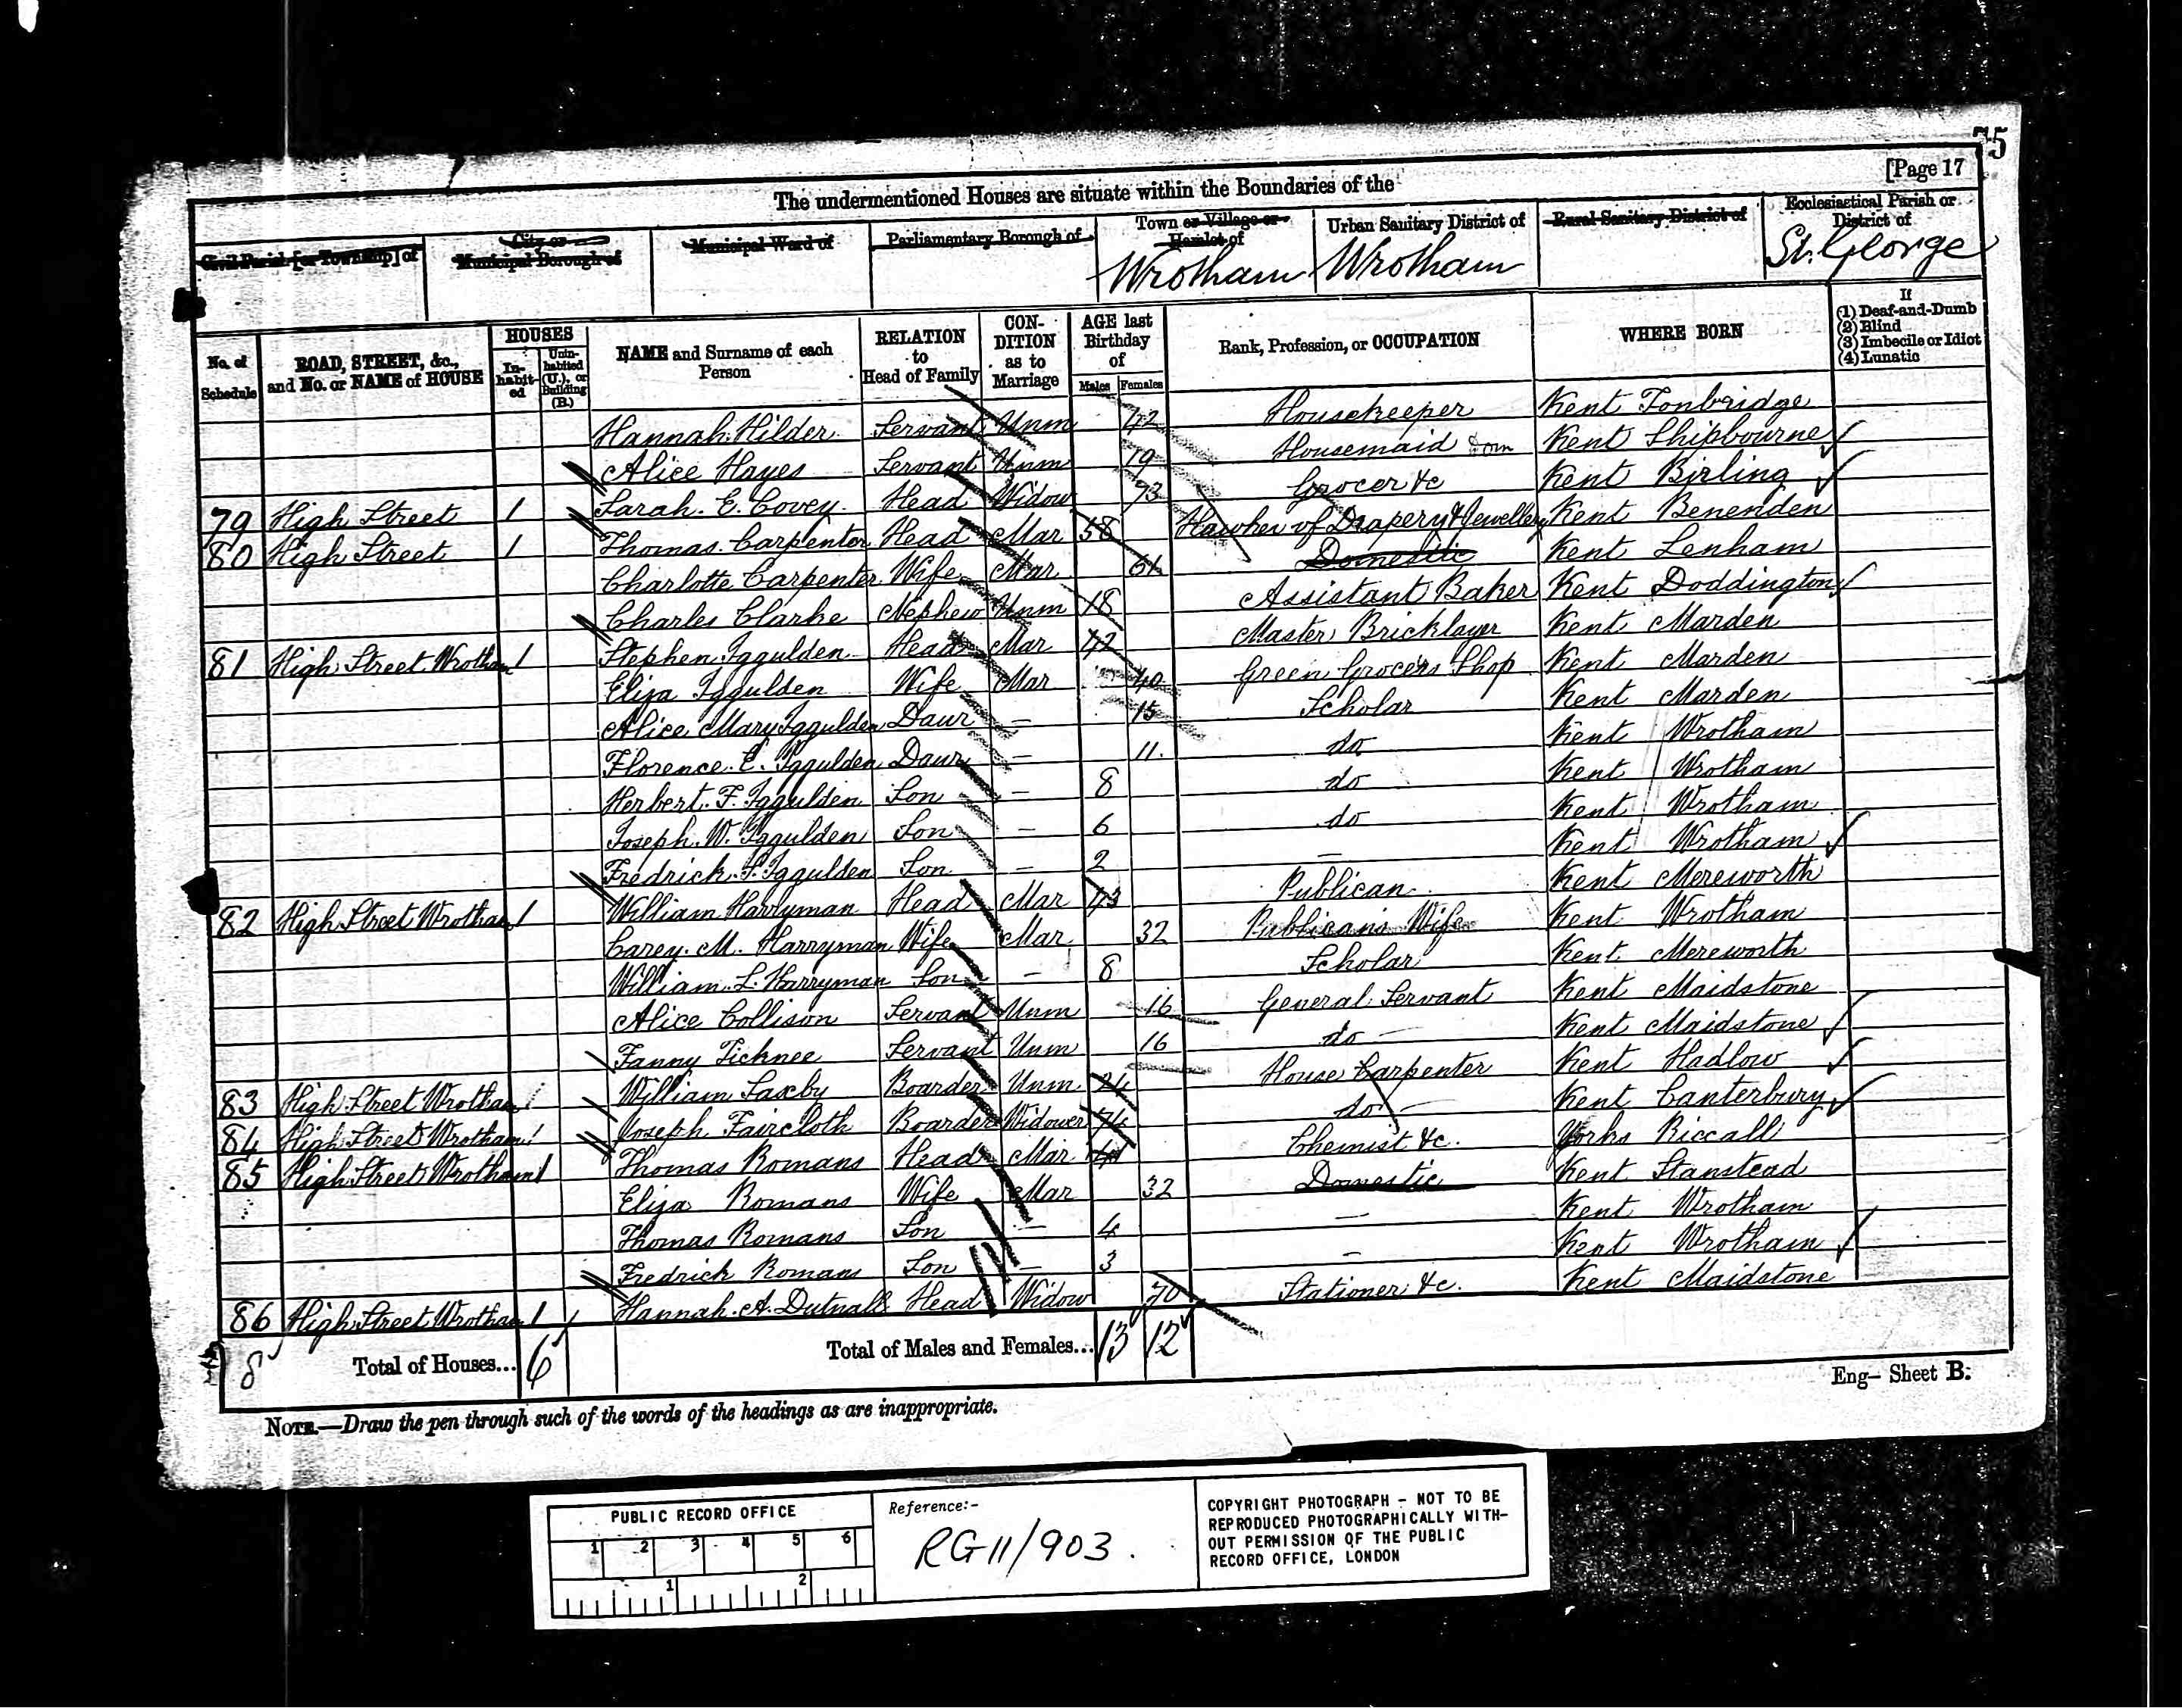 75
[Page 17
The undermentioned Houses are situate within the Boundaries of the
Civil Parish [or Township] of
City or Municipal Borough of
Municipal Ward of
Parliamentary Borough of
Town or Village or Hamlet of
Wrotham
Urban Sanitary District of
Wrotham
Rural Sanitary District of
Ecclesiastical Parish or District of
St. George
No. of Schedule
ROAD, STREET, &c., and No. or NAME of HOUSE
HOUSES
In-habit-ed
Unin-habited (U.), or Building (B.)
NAME and Surname of each Person
RELATION to Head of Family
CON-DITION as to Marriage
AGE last Birthday of
Males
Females
Rank, Profession, or OCCUPATION
WHERE BORN
If (1) Deaf-and-Dumb (2) Blind (3) Imbecile or Idiot (4) Lunatic
Hannah Hilder Servant Unm 42 Housekeeper Kent Tonbridge
Alice Hayes Servant Unm 19 Housemaid Dom Kent Shipbourne
79 High Street 1 Sarah. E. Covey Head Widow 73 Grocer &c Kent Birling
80 High Street 1 Thomas Carpenter Head Mar 58 Hawker of Drapery & Jewellery Kent Benenden
Charlotte Carpenter Wife Mar Domestic Kent Lenham
Charles Clarke Nephew Unm 18 Assistant Baker Kent Doddington
81 High Street Wrotham 1 Stephen Iggulden Head Mar 42 Master Bricklayer Kent Marden
Eliza Iggulden Wife Mar 40 Green Grocers Shop Kent Marden
Alice Mary Iggulden Daur — 15 Scholar Kent Marden
Florence. E. Iggulden Daur — 11. do Kent Wrotham
Herbert. F. Iggulden Son — 8 do Kent Wrotham
Joseph. W. Iggulden Son — 6 do Kent Wrotham
Fredrick. S. Iggulden Son — 2 — Kent Wrotham
82 High Street Wrotham 1 William Harryman Head Mar 43 Publican Kent Mereworth
Carey. M. Harryman Wife Mar 32 Publicans Wife Kent Wrotham
William. L. Harryman Son — 8 Scholar Kent Mereworth
Alice Collison Servant Unm 16 General Servant Kent Maidstone
Fanny Ticknee Servant Unm 16 do — Kent Maidstone
83 High Street Wrotham William Saxby Boarder Unm 24 House Carpenter Kent Hadlow
84 High Street Wrotham Joseph Faircloth Boarder Widower 74 do — Kent Canterbury
85 High Street Wrotham 1 Thomas Romans Head Mar Chemist &c. Yorks Riccall
Eliza Romans Wife Mar 32 Domestic Kent Stanstead
Thomas Romans Son — 4 — Kent Wrotham
Fredrick Romans Son — 3 — Kent Wrotham
86 High Street Wrotham 1 Hannah. A. Dutnall Head Widow 70 Stationer &c. Kent Maidstone
8 Total of Houses... 6 Total of Males and Females... 13 12
Eng— Sheet B.
NOTE.—Draw the pen through such of the words of the headings as are inappropriate.
PUBLIC RECORD OFFICE
1 2 3 4 5 6
1 2
Reference:-
RG 11/903.
COPYRIGHT PHOTOGRAPH - NOT TO BE
REPRODUCED PHOTOGRAPHICALLY WITH-
OUT PERMISSION OF THE PUBLIC
RECORD OFFICE, LONDON